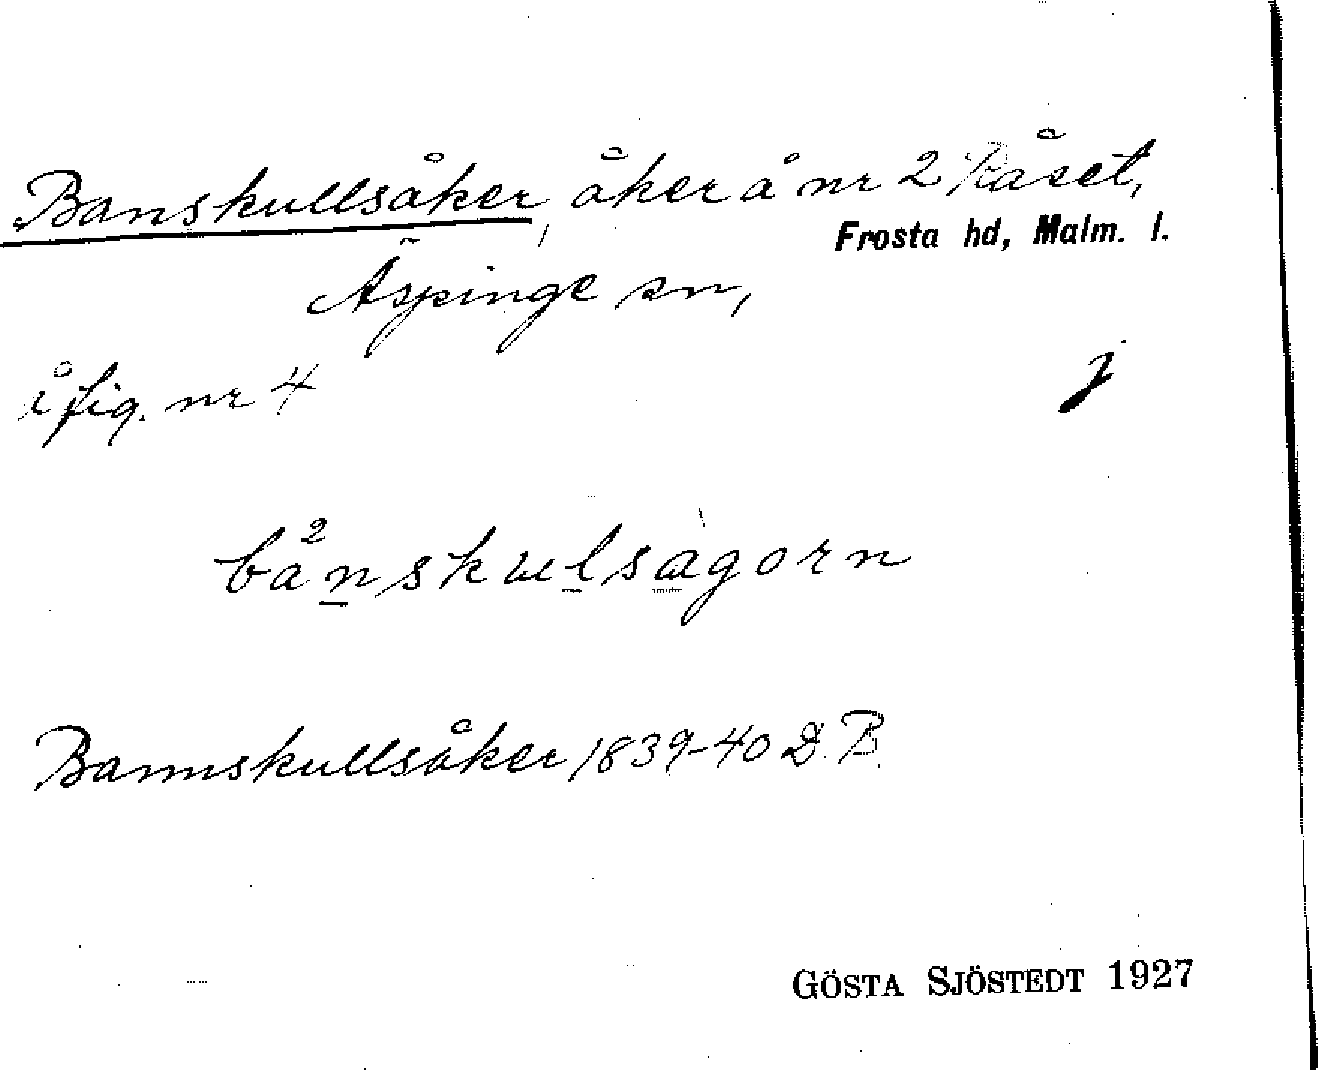 Banskullsåker, åker å nr 2 Råset,
Frosta hd, Malm. l.
Äspinge sn,
å fig. nr 4
Bannskullsåker 1839-40 D.B.
GÖSTA SJÖSTEDT 1927